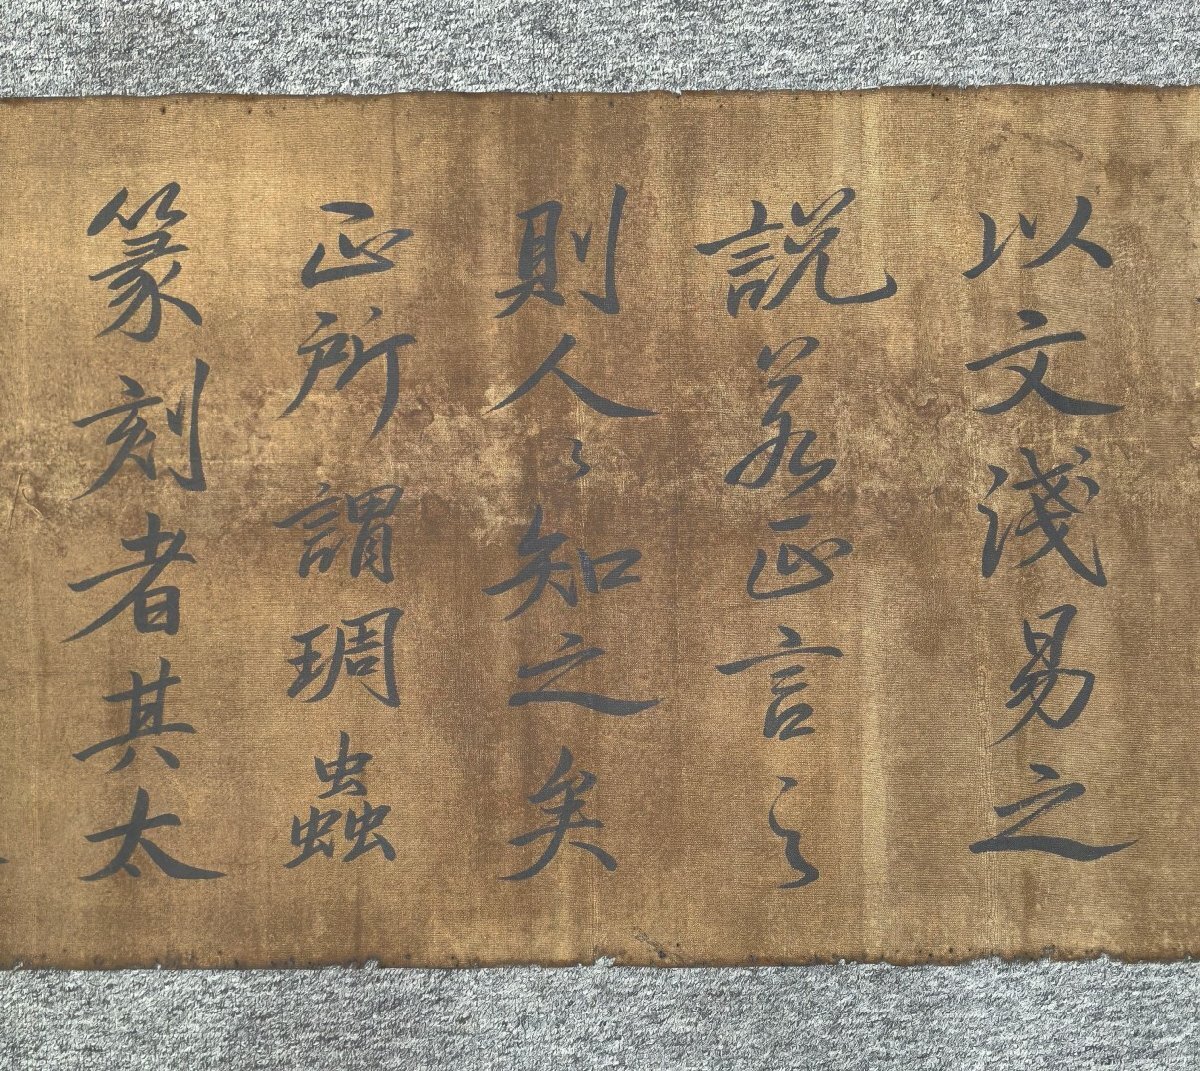 以文淺易之
說若正言之
則人〻知之矣
正所謂琱蟲
篆刻者其太